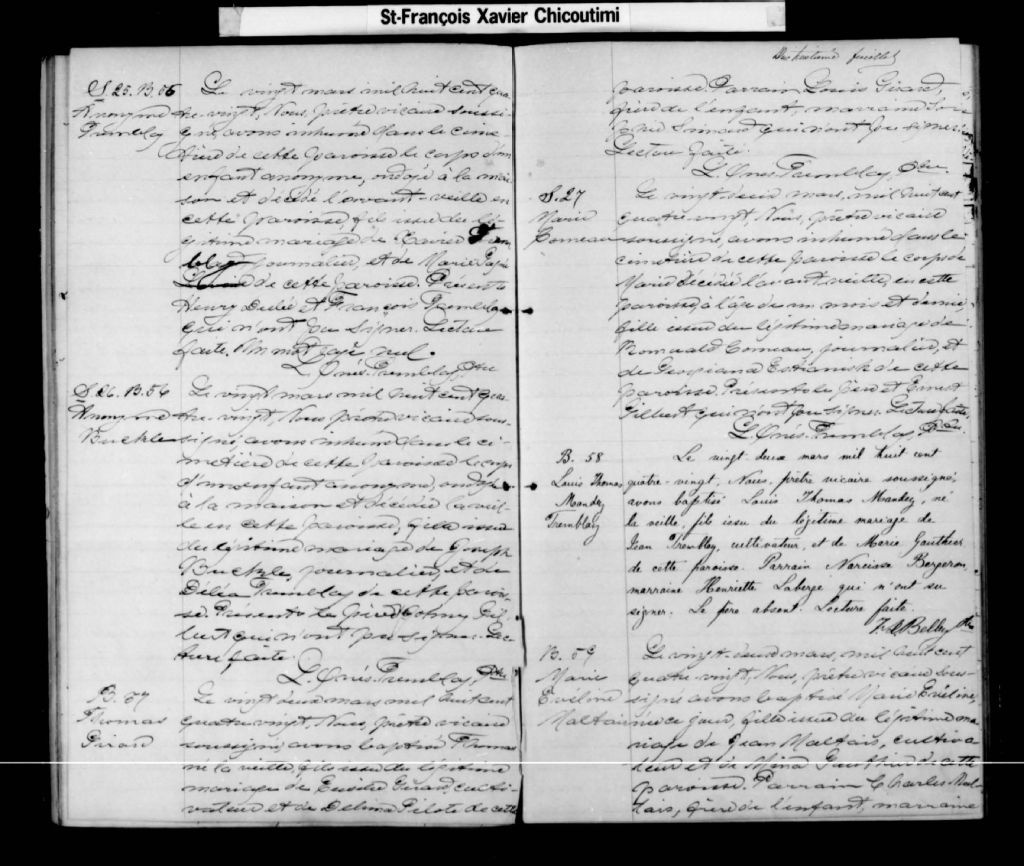 St-François Xavier Chicoutimi
feuillet
S. 25. B. 55
Anonyme
Tremblay
Le vingt mars mil huit cent qua-
tre-vingt, Nous, prêtre vicaire soussi-
gné, avons inhumé dans le cime-
tière de cette paroisse le corps d'un
enfant anonyme, ondoyé à la mai-
son et décédé l'avant-veille en
cette paroisse, fils issu du lé-
gitime mariage de Xavier Trem-
blay journalier, et de Marie
de cette paroisse. Présents
Henry et François Tremblay
qui n'ont pu signer. Lecture
faite. Un mot rayé nul.
L. Onés. Tremblay, Ptre
S. 26. B. 56
Anonyme
Buckle
Le vingt mars mil huit cent qua-
tre-vingt, Nous prêtre vicaire sous-
signé, avons inhumé dans le ci-
metière de cette paroisse le corps
d'un enfant anonyme, ondoyé
à la maison et décédé la veil-
le en cette paroisse, fils issu
du légitime mariage de Joseph
Buckle, journalier, et de
Délia Tremblay de cette parois-
se. Présents le père et Johnny Gil-
bert qui n'ont pu signer. Lec-
ture faite.
L. Onés. Tremblay, Ptre
B. 57
Thomas
Girard
Le vingt-deux mars mil huit cent
quatre-vingt, Nous, prêtre vicaire
soussigné, avons baptisé Thomas
né la veille, fils issu du légitime
mariage de Girard, culti-
vateur et de Delima Pilote de cette
paroisse. Parrain Louis Girard,
frère de l'enfant, marraine
Simard qui n'ont pu signer.
Lecture faite.
L. Onés. Tremblay, Ptre
S. 27
Marie
Comeau
Le vingt-deux mars, mil huit cent
quatre-vingt, Nous, prêtre vicaire
soussigné, avons inhumé dans le
cimetière de cette paroisse le corps de
Marie décédée l'avant-veille, en cette
paroisse, à l'âge de un mois et demi,
fille issue du légitime mariage de
Romuald Comeau, journalier, et
de Georgiana de cette
paroisse. Présents le père et Ernest
Gilbert qui n'ont pu signer. Lecture faite.
L. Onés. Tremblay, Ptre
B. 58
Louis Thomas
Mandez
Tremblay
Le vingt-deux mars mil huit cent
quatre-vingt, Nous, prêtre vicaire soussigné,
avons baptisé Louis Thomas Mandez, né
la veille, fils issu du légitime mariage de
Jean Tremblay, cultivateur, et de Marie Gauthier
de cette paroisse. Parrain Narcisse Bergeron,
marraine Henriette Laberge qui n'ont su
signer. Le père absent. Lecture faite.
Belley Ptre
B. 59
Marie
Eveline
Maltais
Le vingt-deux mars, mil huit cent
quatre-vingt, Nous, prêtre vicaire sous-
signé avons baptisé Marie Eveline,
née ce jour, fille issue du légitime ma-
riage de Jean Maltais, cultiva-
teur et de de cette
paroisse. Parrain Charles Mal-
tais, frère de l'enfant, marraine